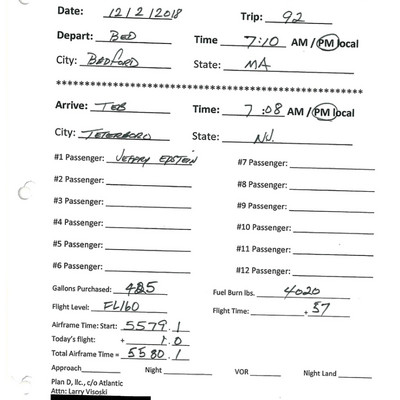 Date: 12/2/2018 Trip: 92
Depart: BED Time 7:10 AM / PM local
City: BEDFORD State: MA
**************************************************
Arrive: TEB Time: 7:08 AM / PM local
City: TETERBORO State: NJ.
#1 Passenger: JEFFREY EPSTEIN #7 Passenger:
#2 Passenger: #8 Passenger:
#3 Passenger: #9 Passenger:
#4 Passenger: #10 Passenger:
#5 Passenger: #11 Passenger:
#6 Passenger: #12 Passenger:
Gallons Purchased: 425 Fuel Burn lbs. 4020
Flight Level: FL160 Flight Time: .37
Airframe Time: Start: 5579.1
Today's flight: + 1.0
Total Airframe Time = 5580.1
Approach Night VOR Night Land
Plan D, llc., c/o Atlantic
Attn: Larry Visoski